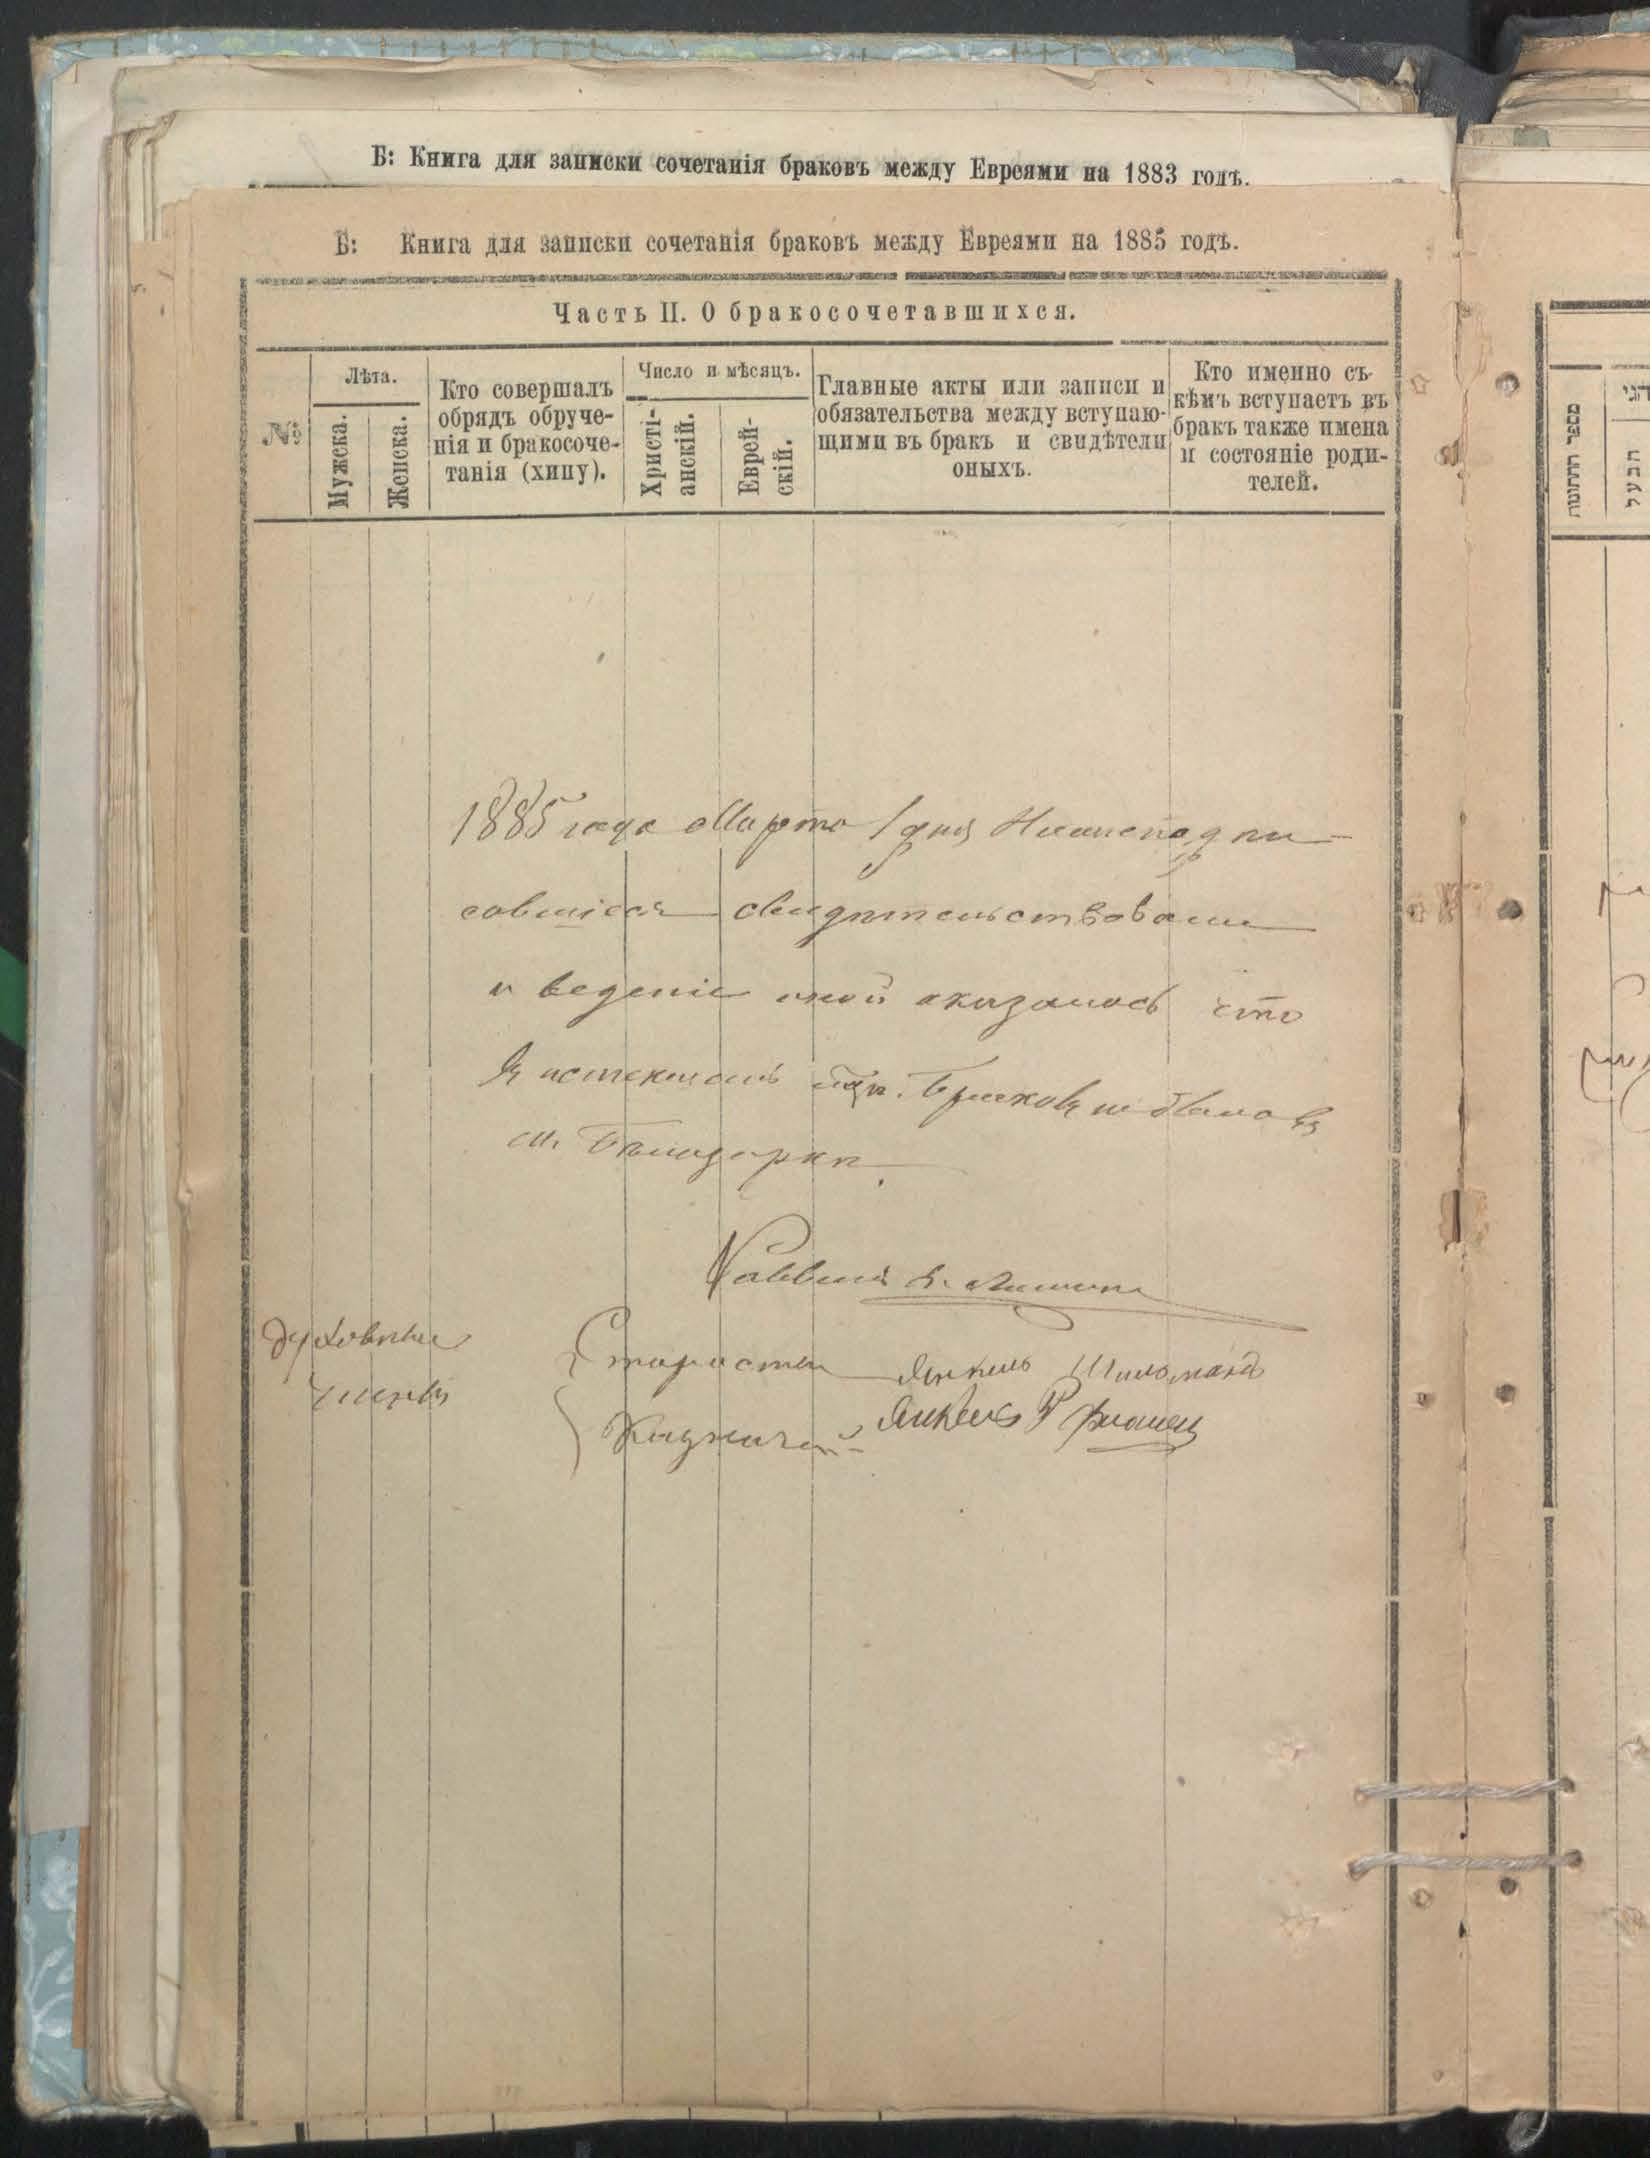 Б: Книга для записки сочетанія браковъ между Евреями на 1883 годъ.
Б: Книга для записки сочетанія браковъ между Евреями на 1885 годъ.
Часть II. О бракосочетавшихся.
№
Лѣта.
Мужеска.
Женска.
Кто совершалъ
обрядъ обруче-
нія и бракосоче-
танія (хипу).
Число и мѣсяцъ.
Христі-
анскій.
Еврей-
скій.
Главные акты или записи и
обязательства между вступаю-
щими въ бракъ и свидѣтели
оныхъ.
Кто именно съ
кѣмъ вступаетъ въ
бракъ также имена
и состояніе роди-
телей.
1885 года Марта 1 дня Нижеподпи-
савшіеся свидѣтельствовали
и веденіе оной оказалось что
въ истекшемъ браковъ не было въ
м. Бѣлозоркѣ.
Раввинъ
Духовные
члены
Староста Янкель Шильманъ
Казначей Янкель
מספר החתונות
הבעל